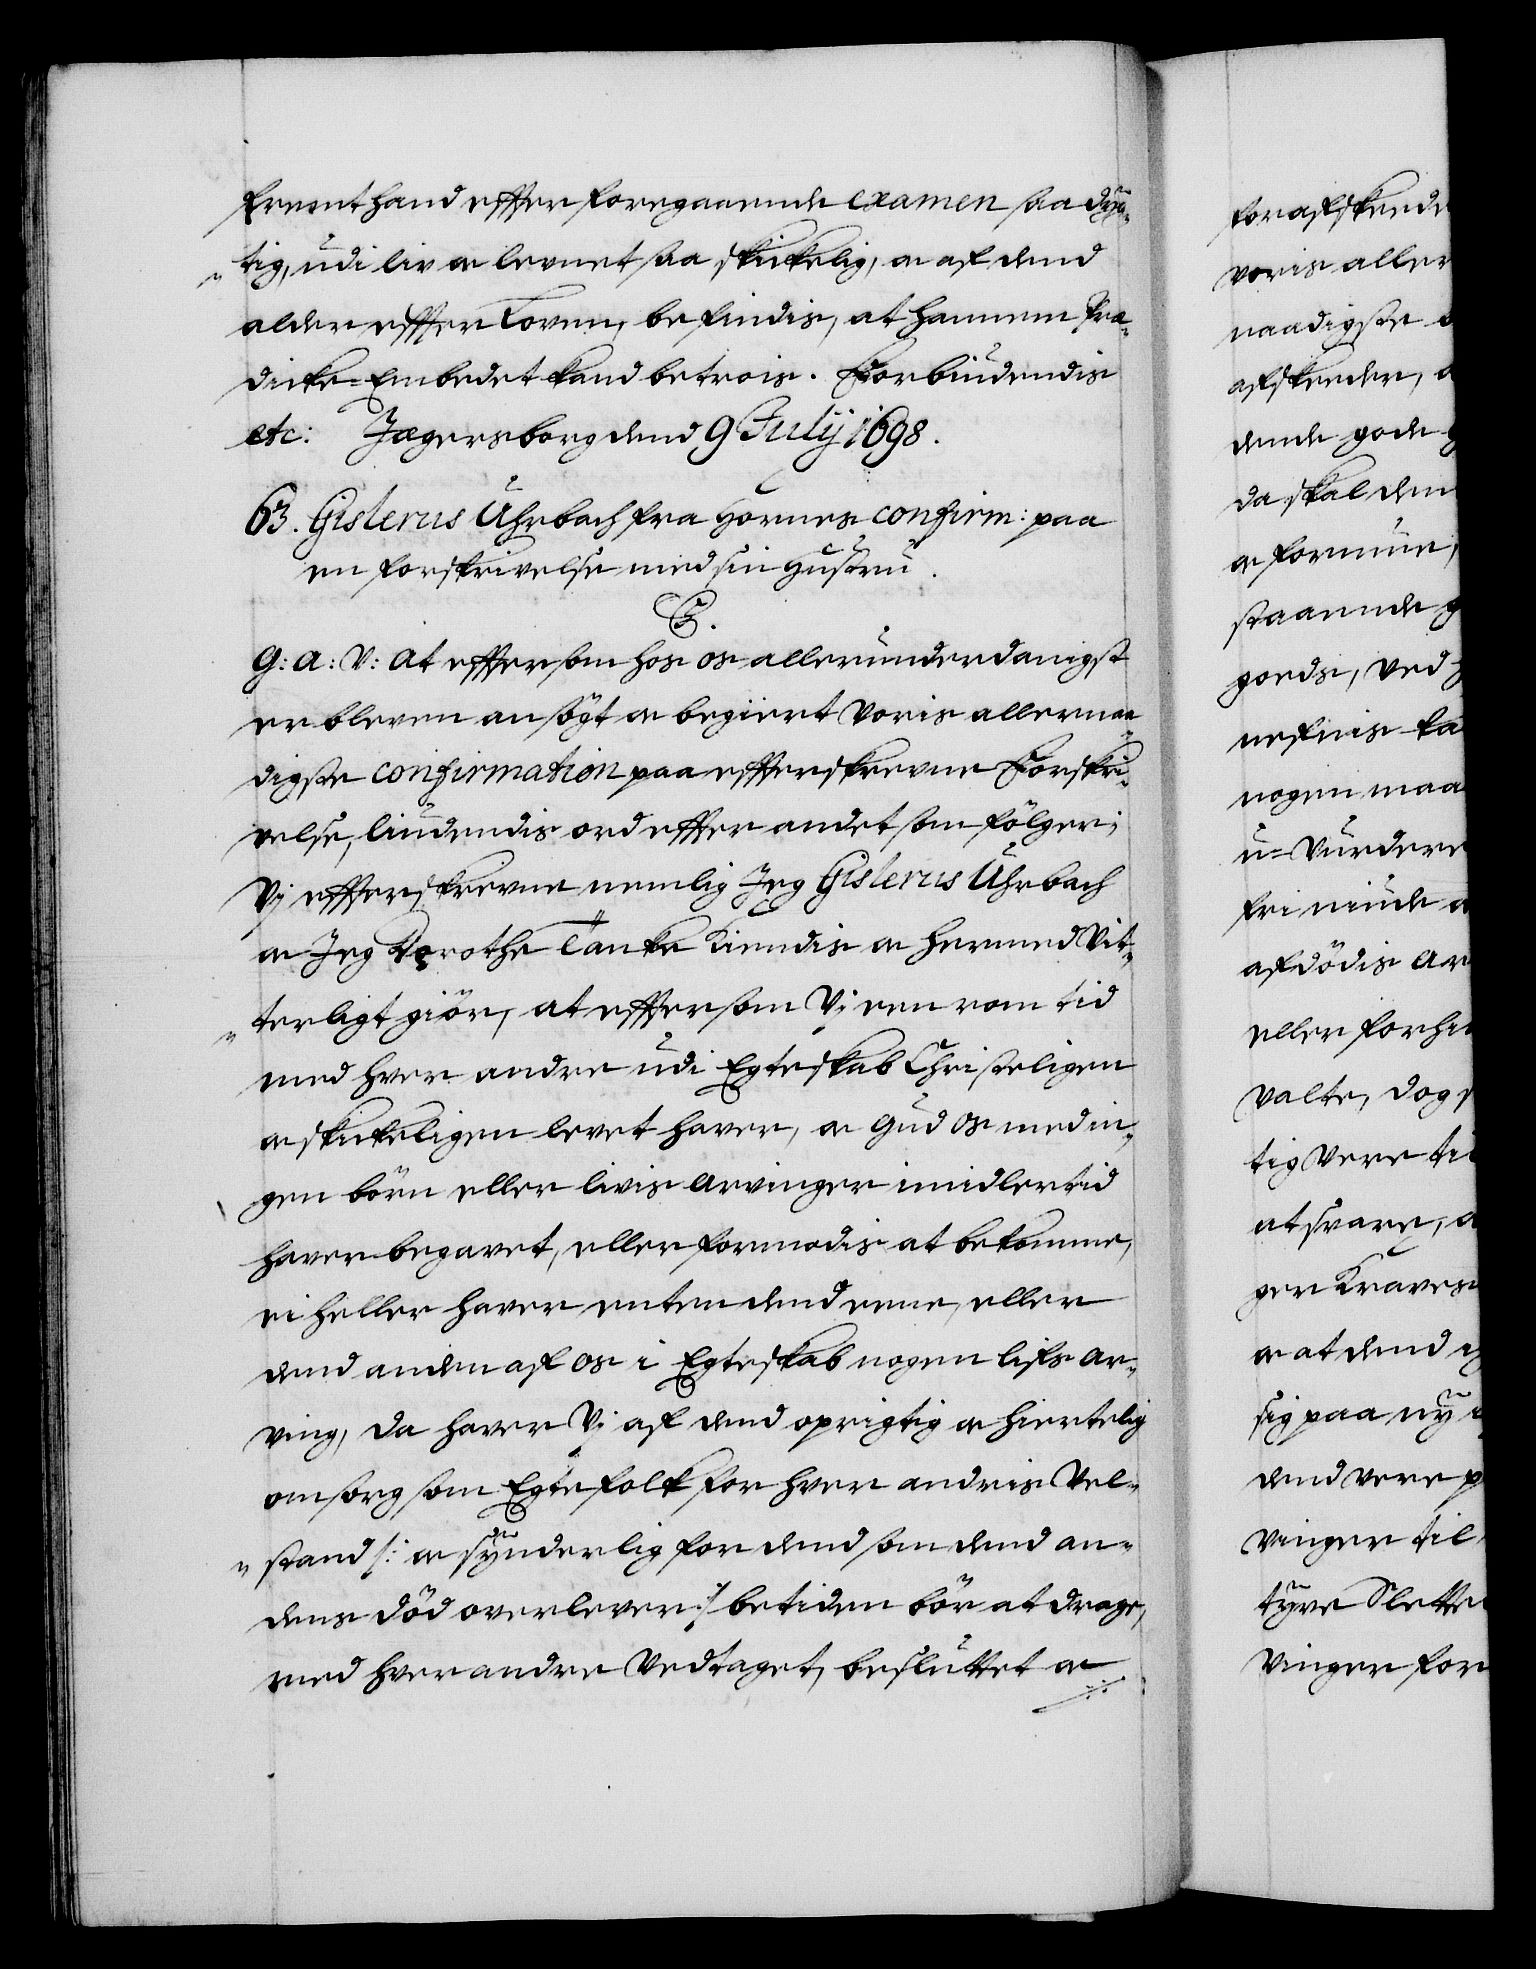 fremt hand effter foregaaende examen saa dyg-
tig, udi liv oc levnet saa skickelig, oc af dend
alder effter Loven, befindis, at hannem Præ-
dicke-Embedet kand betrois. Forbiudendis
etc: Jægersborg dend 9 July 1698.
63. Gislerus Uhrbach fra Hornes confirm: paa
en forskrivelse med sin Hustru.
C5.
G: A: V: at effter som hos os allerunderdanigst
er bleven ansögt oc begiert Voris allernaa-
digste confirmation paa effterskrevne Forskri-
velse, liudendis ord effter andet som fölger;
Vj effterskrevne nemlig Jeg Gislerus Uhrbach
oc Jeg Dorothe Tanke Kiendis oc hermed Vit-
terligt giör, at effter som Vj een rom tid
med hver andre udi Egteskab Christeligen
oc skickeligen levet haver, oc Gud os med in-
gen börn eller livis Arvinger imidlertid
haver begavet, eller formodis at bekomme,
ei heller haver enten dend eene, eller
dend anden af os i Egteskab nogen lifs Ar-
ving, da haver Vj af dend oprigtig oc hiertelig
omsorg som Egtefolk for hver andris Vel-
stand /: oc synderlig for dend som dend an-
dens död overlever :/ betiden bör at drage,
med hver andre Vedtaget, besluttet oc
for afskeede
voris aller
naadigste
afskeeder,
dende gode
da skal den
oc formue,
staaende
gods, ved
nefnis ka
nogen maa
u-Vurdere
fri niude
afdödis Ar
eller forhi
Valte, dog
tig vere til
at svare,
ger Kraves
oc at dend
sig paa ny
dend vere
Vinger til
tyve Slette
Vinger for